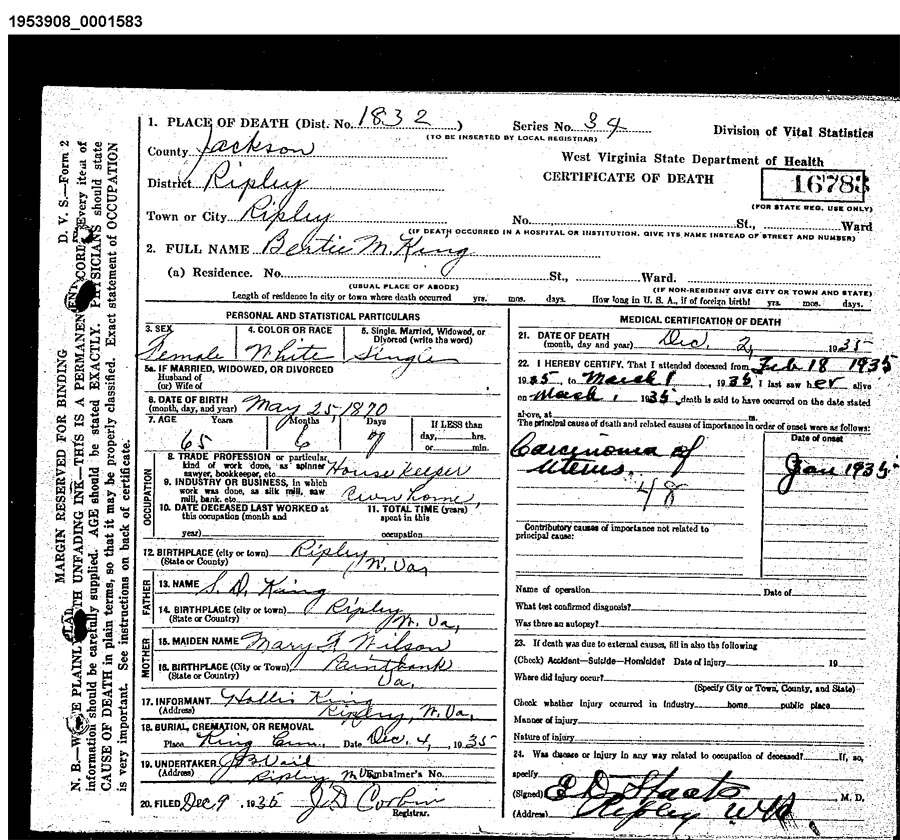 1953908_0001583
1. PLACE OF DEATH (Dist. No. 1832 ) Series No. 34 Division of Vital Statistics
(TO BE INSERTED BY LOCAL REGISTRAR)
County Jackson West Virginia State Department of Health
District Ripley CERTIFICATE OF DEATH 16783
(FOR STATE REG. USE ONLY)
Town or City Ripley No. St., Ward
(IF DEATH OCCURRED IN A HOSPITAL OR INSTITUTION, GIVE ITS NAME INSTEAD OF STREET AND NUMBER)
2. FULL NAME Bertie M. King
(a) Residence. No. St., Ward.
(USUAL PLACE OF ABODE) (IF NON-RESIDENT GIVE CITY OR TOWN AND STATE)
Length of residence in city or town where death occurred yrs. mos. days. How long in U. S. A., if of foreign birth? yrs. mos. days.
PERSONAL AND STATISTICAL PARTICULARS
3. SEX 4. COLOR OR RACE 5. Single, Married, Widowed, or
Divorced (write the word)
Female White Single
5a. IF MARRIED, WIDOWED, OR DIVORCED
Husband of
(or) Wife of
6. DATE OF BIRTH
(month, day, and year) May 25, 1870
7. AGE Years Months Days If LESS than
day, hrs.
or min.
65 6 07
OCCUPATION
8. TRADE PROFESSION or particular
kind of work done, as spinner
sawyer, bookkeeper, etc. House Keeper
9. INDUSTRY OR BUSINESS, in which
work was done, as silk mill, saw
mill, bank, etc. own home,
10. DATE DECEASED LAST WORKED at 11. TOTAL TIME (years)
this occupation (month and spent in this
year) occupation
12. BIRTHPLACE (city or town) Ripley
(State or County) W. Va,
FATHER
13. NAME S. D. King
14. BIRTHPLACE (city or town) Ripley
(State or Country) W. Va,
MOTHER
15. MAIDEN NAME Mary F Wilson
16. BIRTHPLACE (City or Town) Paintbank
(State or Country) Va.
17. INFORMANT Hollis King
(Address) Ripley, W. Va.
18. BURIAL, CREMATION, OR REMOVAL
Place King Cem. Date Dec. 4, 1935
19. UNDERTAKER J B Vail
(Address) Ripley W Va Embalmer's No.
20. FILED Dec 9, 1935 J. D Corbin
Registrar.
MEDICAL CERTIFICATION OF DEATH
21. DATE OF DEATH
(month, day and year) Dec. 2, 1935
22. I HEREBY CERTIFY. That I attended deceased from Feb 18 1935
1935, to March 1, 1935, I last saw her alive
on March 1 1935, death is said to have occurred on the date stated
above, at m.
The principal cause of death and related causes of importance in order of onset were as follows:
Date of onset
Carcinoma of
Uterus. Jan 1935
48
Contributory causes of importance not related to
principal cause:
Name of operation Date of
What test confirmed diagnosis?
Was there an autopsy?
23. If death was due to external causes, fill in also the following
(Check) Accident—Suicide—Homicide? Date of injury 19
Where did injury occur?
(Specify City or Town, County, and State)
Check whether injury occurred in Industry home public place
Manner of injury
Nature of injury
24. Was disease or injury in any way related to occupation of deceased? If, so,
specify
(Signed) E D Staats, M. D.
(Address) Ripley W Va
D. V. S.—Form 2
MARGIN RESERVED FOR BINDING
N. B.—WRITE PLAINLY WITH UNFADING INK—THIS IS A PERMANENT RECORD. Every item of
information should be carefully supplied. AGE should be stated EXACTLY. PHYSICIANS should state
CAUSE OF DEATH in plain terms, so that it may be properly classified. Exact statement of OCCUPATION
is very important. See instructions on back of certificate.